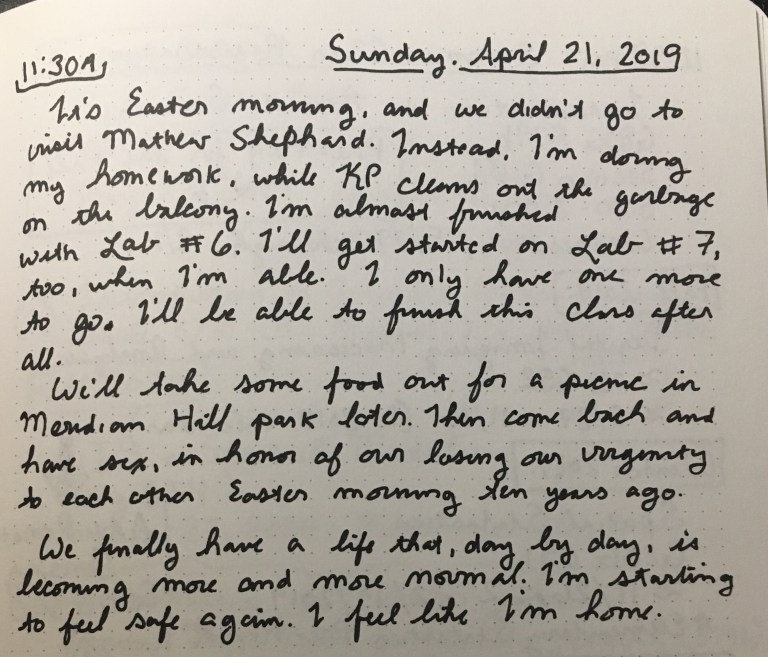 11:30A
Sunday. April 21, 2019
It's Easter morning, and we didn't go to
visit Mathew Shephard. Instead, I'm doing
my homework, while KP cleans out the garbage
on the balcony. I'm almost finished
with Lab #6. I'll get started on Lab #7,
too, when I'm able. I only have one more
to go. I'll be able to finish this class after
all.
We'll take some food out for a picnic in
Meridian Hill park later. Then come back and
have sex, in honor of our losing our virginity
to each other Easter morning ten years ago.
We finally have a life that, day by day, is
becoming more and more normal. I'm starting
to feel safe again. I feel like I'm home.